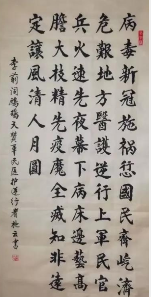 病毒新冠施禍愆國民齊屹濟
危艱地方醫護逆行上軍民官
兵火速先夜幕下病床邊藝高
膽大技精先疫魔全滅知非遠
定讓風清人月圓
李前 鷓鴣天 民医护逆行者 書